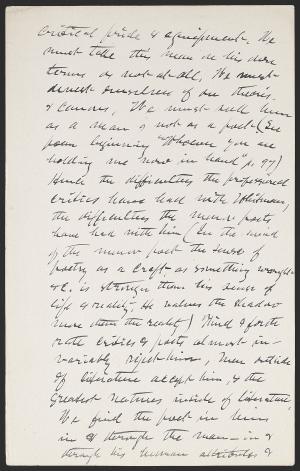 critical pride & equipment. We
must take this man on his own
terms or not at all. We must
divest ourselves of our theories
& canons. We must seek him
as a man & not as a poet (See
poem beginning "Whoever you are
holding me now in hand" p. 97)
Hence the difficulties the professional
critics have had with Whitman,
the difficulties the minor poets
have had with him (In the mind
of the minor poet the sense of
poetry as a craft - as something wrought
&c. is stronger than his sense of
life & reality. He values the shadow
more than the reality) Third & fourth
rate critics & poets almost in-
variably reject him, Men outside
of literature accept him, & the
greatest natures inside of literature.
We find the poet in him
in & through the man - in &
through his human attributes &